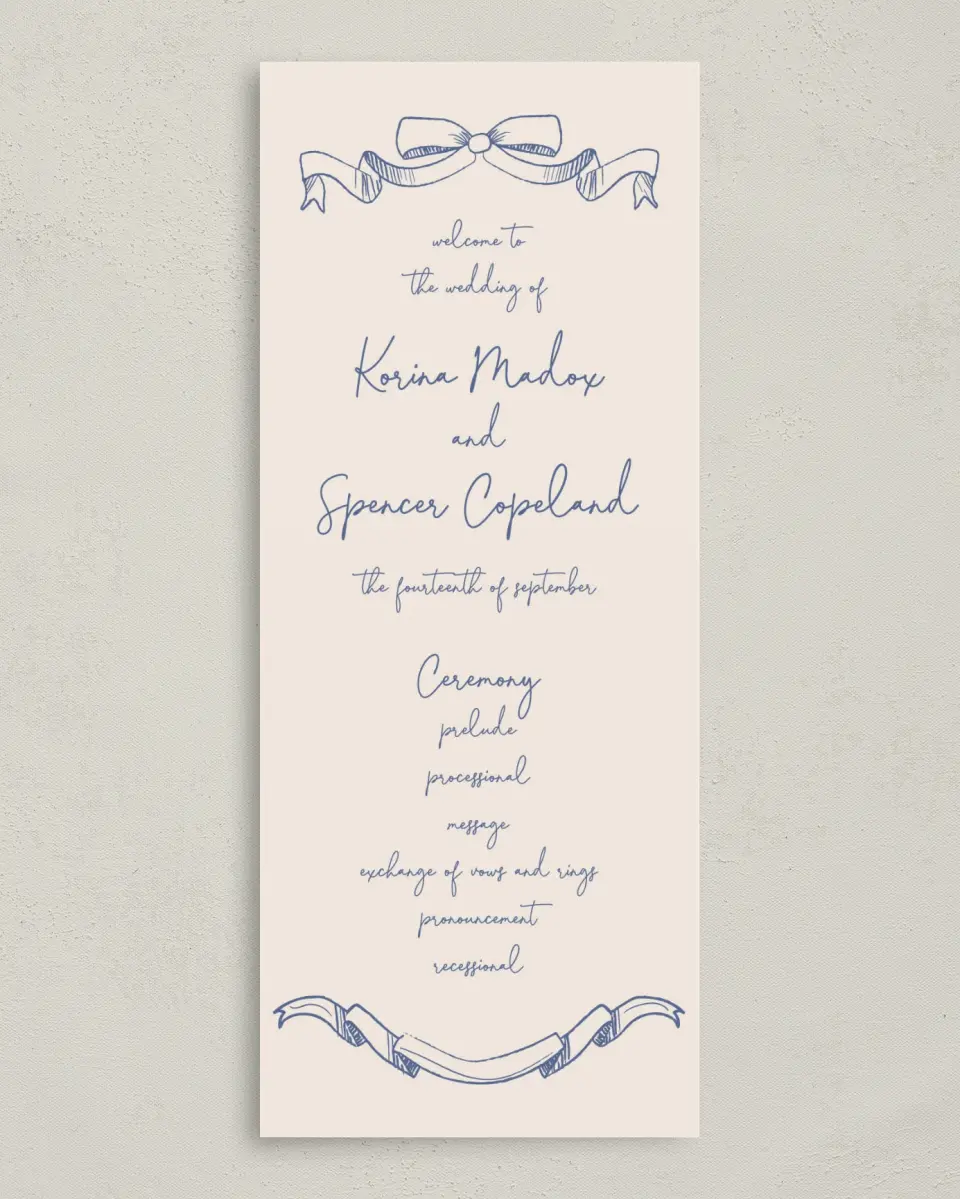 welcome to
the wedding of
Korina Madox
and
Spencer Copeland
the fourteenth of september
Ceremony
prelude
processional
message
exchange of vows and rings
pronouncement
recessional